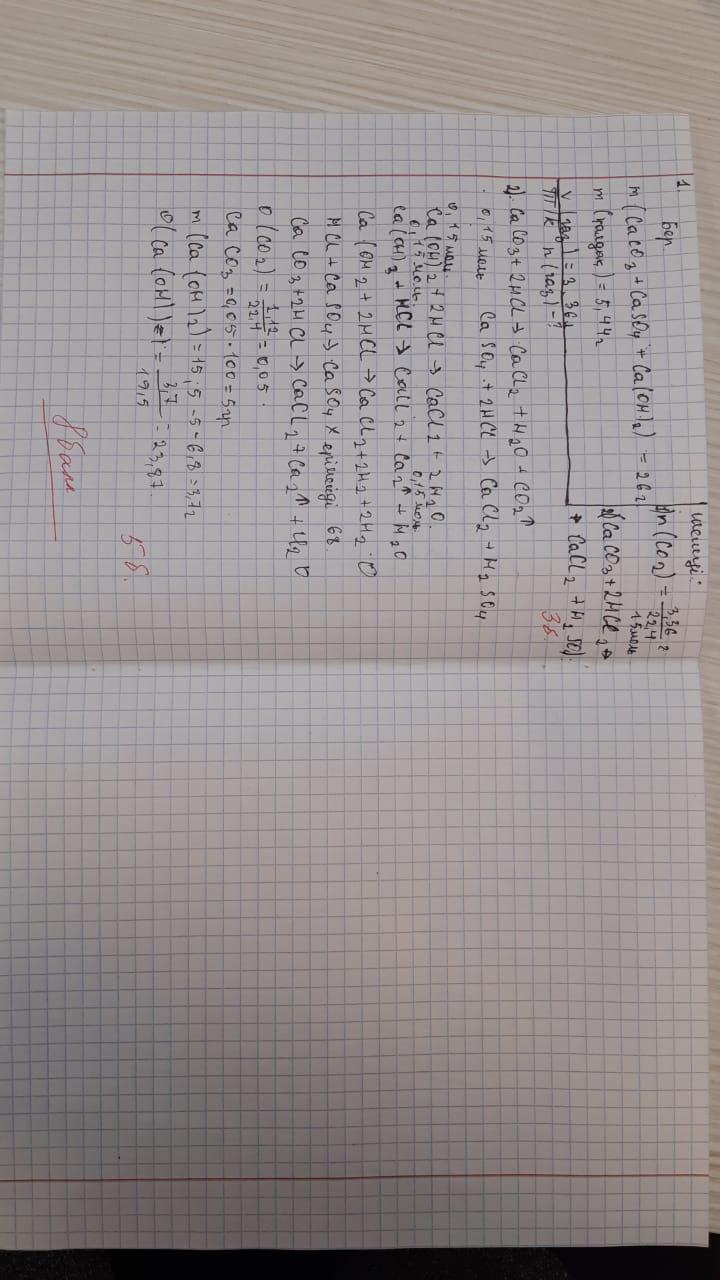 1.
Бер
m (CaCO3 + CaSO4 + Ca(OH)2) = 26г
m (қалдық) = 5,44г
V (газ) = 3,36л
Т/к n (газ) - ?
Шешуі:
1) n (CO2) = 3,36 / 22,4 =
15 моль
2) CaCO3 + 2HCl2 →
→ CaCl2 + H2SO4
3б.
2). CaCO3 + 2HCl → CaCl2 + H2O + CO2↑
0,15 моль CaSO4 + 2HCl → CaCl2 + H2SO4
0,15 моль
Ca(OH)2 + 2HCl → CaCl2 + 2H2O.
0,15 моль 0,15 моль
Ca(OH)2 + HCl → CaCl2 + Ca2↑ + H2O
Ca(OH2 + 2HCl → CaCl2 + 2H2 + 2H2O
HCl + CaSO4 → CaSO4 × ерімейді 68
CaCO3 + 2HCl → CaCl2 + Ca2↑ + H2O
υ(CO2) = 1,12 / 22,4 = 0,05.
CaCO3 = 0,05 · 100 = 5гр
m(Ca(OH)2) = 15,5 - 5 - 6,8 = 3,7г
υ(Ca(OH)) = 3,7 / 19,5 = 23,87.
5б.
8 балл